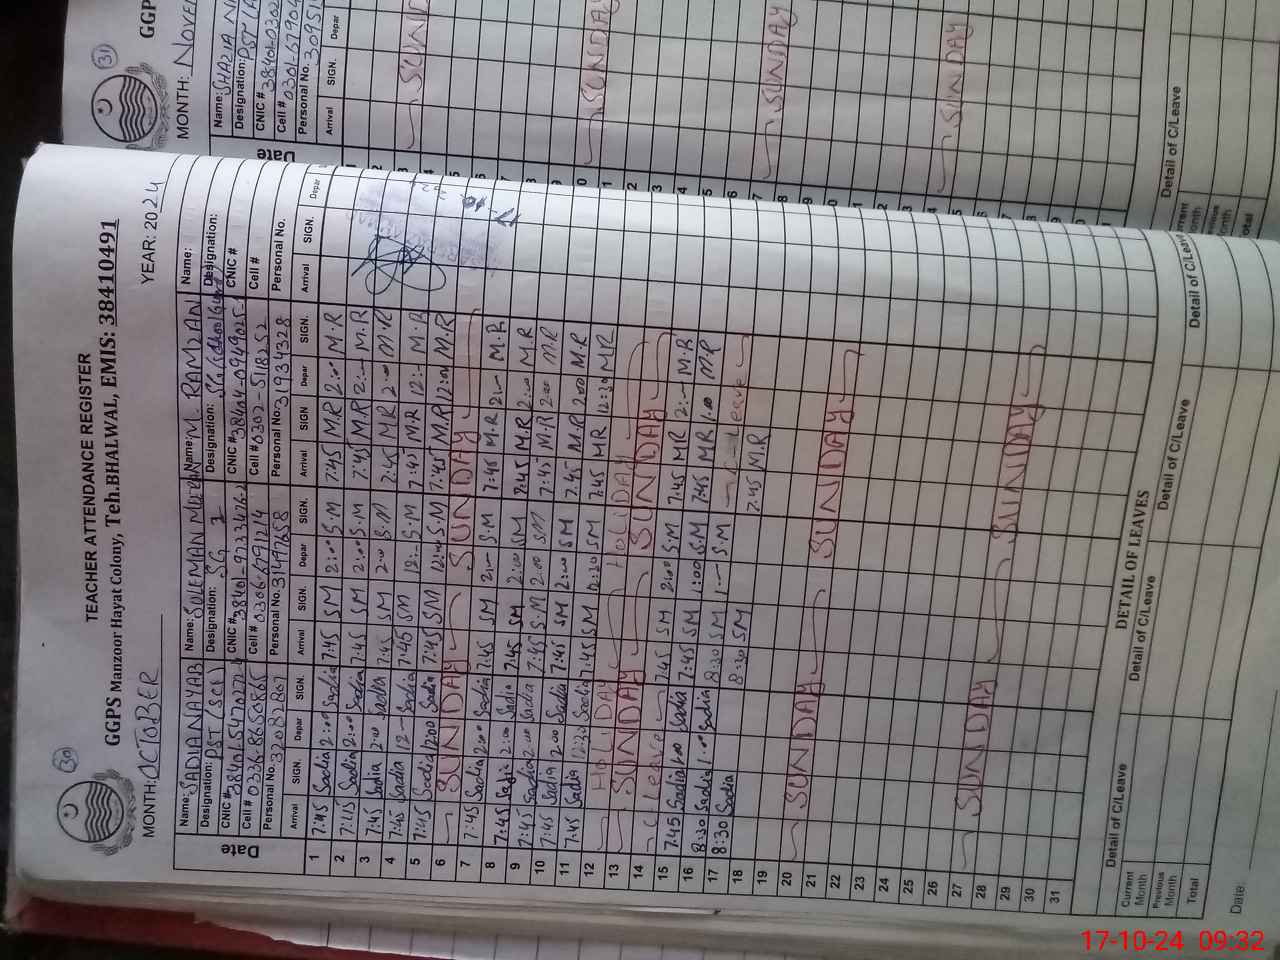 30
TEACHER ATTENDANCE REGISTER
GGPS Manzoor Hayat Colony, Teh.BHALWAL, EMIS: 38410491
MONTH: OCTOBER YEAR: 2024
Date
Name: SADIA NAYAB Name: SULEMAN Name: M. RAMZAN Name:
Designation: PST (SCS) Designation: SG Designation: SG (School Guard) Designation:
CNIC # CNIC # CNIC # 38404-0949025- CNIC #
Cell # 0336-8650865 Cell # 0306-6791214 Cell # 0302-5118252 Cell #
Personal No. 32082807 Personal No. 31497658 Personal No. 31934328 Personal No.
Arrival SIGN. Depar SIGN. Arrival SIGN. Depar SIGN. Arrival SIGN. Depar SIGN. Arrival SIGN. Depar
1 7:45 Sadia 2:00 Sadia 7:45 SM 2:00 S.M 7:45 M.R 2:00 M.R
2 7:45 Sadia 2:00 Sadia 7:45 SM 2:00 S.M 7:45 M.R 2:— M.R
3 7:45 Sadia 2:00 Sadia 7:45 SM 2:00 S.M 7:45 M.R 2:00 M.R
4 7:45 Sadia 12:— Sadia 7:45 SM 12:— S.M 7:45 M.R 12:— M.R
5 7:45 Sadia 12:00 Sadia 7:45 SM 12:00 S.M 7:45 M.R 12:00 M.R
6 SUNDAY SUNDAY
7 7:45 Sadia 2:00 Sadia 7:45 SM 2:— S.M 7:45 M.R 2:— M.R
8 7:45 Sadia 2:00 Sadia 7:45 SM 2:00 SM 7:45 M.R 2:00 M.R
9 7:45 Sadia 2:00 Sadia 7:45 S.M 2:00 SM 7:45 M.R 2:00 M.R
10 7:45 Sadia 2:00 Sadia 7:45 SM 2:00 SM 7:45 M.R 2:00 M.R
11 7:45 Sadia 12:30 Sadia 7:45 SM 12:30 SM 7:45 MR 12:30 MR
12 HOLIDAY HOLIDAY
13 SUNDAY SUNDAY
14 C Leave 7:45 SM 2:00 S.M 7:45 MR 2:— M.R
15 7:45 Sadia 1:00 Sadia 7:45 SM 1:00 S.M 7:45 MR 1:00 M.R
16 8:30 Sadia 1:00 Sadia 8:30 SM 1:— S.M C-Leave
17 8:30 Sadia 8:30 SM 7:45 M.R
18
19
20 SUNDAY SUNDAY
21
22
23
24
25
26
27 SUNDAY SUNDAY
28
29
30
31
DETAIL OF LEAVES
Detail of C/Leave Detail of C/Leave Detail of C/Leave Detail of C/Leave
Current Month
Previous Month
Total
Date:
31
GGP
MONTH: NOVEM
Name: SHAZIA
Designation: PST
CNIC # 38401-0302
Cell # 0301-67904
Personal No. 30951
Date
Arrival SIGN. Depar
SUND
SUNDAY
SUNDAY
SUNDAY
Detail of C/Leave
Detail of C/Leave
17-10-24 09:32